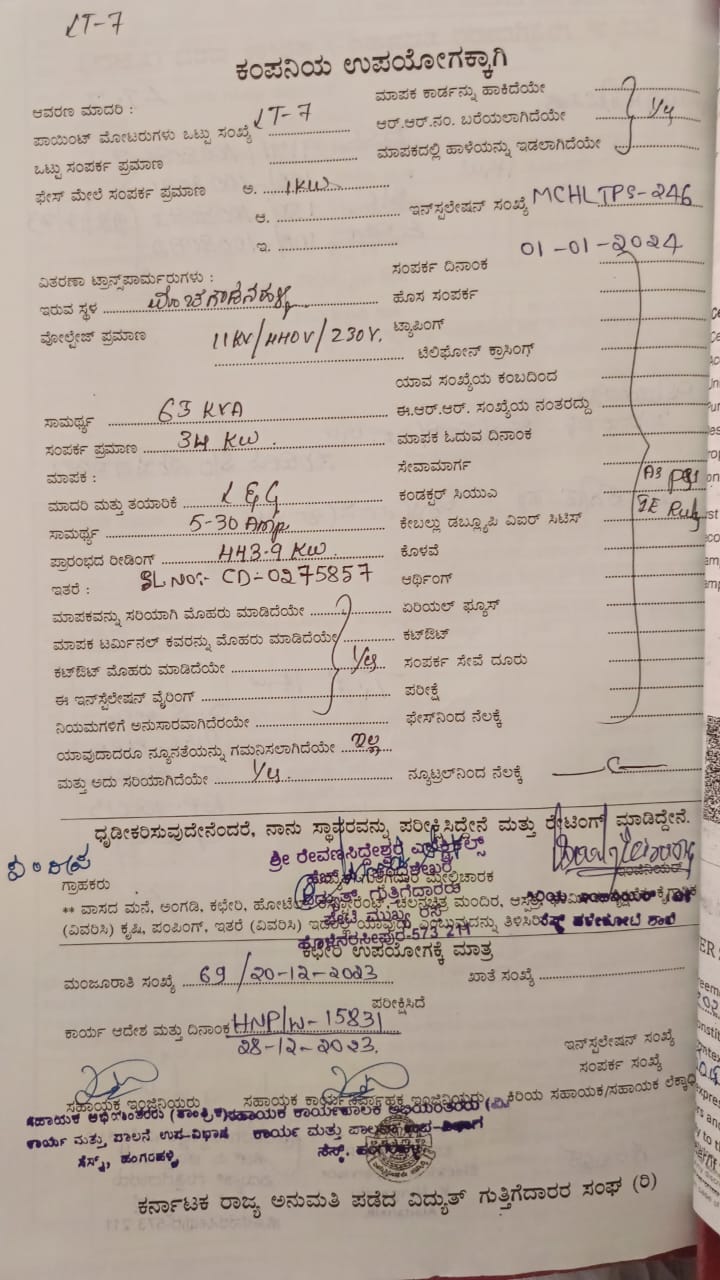 LT-7
ಕಂಪನಿಯ ಉಪಯೋಗಕ್ಕಾಗಿ
ಆವರಣ ಮಾದರಿ :
ಪಾಯಿಂಟ್ ಮೋಟರುಗಳು ಒಟ್ಟು ಸಂಖ್ಯೆ LT-7
ಒಟ್ಟು ಸಂಪರ್ಕ ಪ್ರಮಾಣ
ಫೇಸ್ ಮೇಲೆ ಸಂಪರ್ಕ ಪ್ರಮಾಣ ಅ. 1KW
ಆ.
ಇ.
ಮಾಪಕ ಕಾರ್ಡನ್ನು ಹಾಕಿದೆಯೇ
ಆರ್.ಆರ್.ನಂ. ಬರೆಯಲಾಗಿದೆಯೇ Yes
ಮಾಪಕದಲ್ಲಿ ಹಾಳೆಯನ್ನು ಇಡಲಾಗಿದೆಯೇ
ಇನ್‌ಸ್ಟಲೇಷನ್ ಸಂಖ್ಯೆ MCHLTPS-246
01-01-2024
ವಿತರಣಾ ಟ್ರಾನ್ಸ್‌ಪಾರ್ಮರುಗಳು :
ಇರುವ ಸ್ಥಳ
ವೋಲ್ಟೇಜ್ ಪ್ರಮಾಣ 11KV/440V/230V.
ಸಾಮರ್ಥ್ಯ 63 KVA
ಸಂಪರ್ಕ ಪ್ರಮಾಣ 34 KW
ಮಾಪಕ :
ಮಾದರಿ ಮತ್ತು ತಯಾರಿಕೆ L&G
ಸಾಮರ್ಥ್ಯ 5-30 Amp
ಪ್ರಾರಂಭದ ರೀಡಿಂಗ್ 443.9 KW
ಇತರೆ : SL NO:- CD-0275857
ಮಾಪಕವನ್ನು ಸರಿಯಾಗಿ ಮೊಹರು ಮಾಡಿದೆಯೇ
ಮಾಪಕ ಟರ್ಮಿನಲ್ ಕವರನ್ನು ಮೊಹರು ಮಾಡಿದೆಯೇ
ಕಟ್‌ಔಟ್ ಮೊಹರು ಮಾಡಿದೆಯೇ Yes
ಈ ಇನ್‌ಸ್ಟಲೇಷನ್ ವೈರಿಂಗ್
ನಿಯಮಗಳಿಗೆ ಅನುಸಾರವಾಗಿದೆರಯೇ
ಯಾವುದಾದರೂ ನ್ಯೂನತೆಯನ್ನು ಗಮನಿಸಲಾಗಿದೆಯೇ ಇಲ್ಲ
ಮತ್ತು ಅದು ಸರಿಯಾಗಿದೆಯೇ Yes
ಸಂಪರ್ಕ ದಿನಾಂಕ
ಹೊಸ ಸಂಪರ್ಕ
ಟ್ಯಾಪಿಂಗ್
ಟೆಲಿಫೋನ್ ಕ್ರಾಸಿಂಗ್
ಯಾವ ಸಂಖ್ಯೆಯ ಕಂಬದಿಂದ
ಈ.ಆರ್.ಆರ್. ಸಂಖ್ಯೆಯ ನಂತರದ್ದು
ಮಾಪಕ ಓದುವ ದಿನಾಂಕ
ಸೇವಾಮಾರ್ಗ
ಕಂಡಕ್ಟರ್ ಸಿಯುಎ As per
ಕೇಬಲ್ಲು ಡಬ್ಲ್ಯೂಪಿ ವಿಐರ್ ಸಿಟಿಸ್ IE Rule
ಕೊಳವೆ
ಆರ್ಥಿಂಗ್
ಏರಿಯಲ್ ಫ್ಯೂಸ್
ಕಟ್‌ಔಟ್
ಸಂಪರ್ಕ ಸೇವೆ ದೂರು
ಪರೀಕ್ಷೆ
ಫೇಸ್‌ನಿಂದ ನೆಲಕ್ಕೆ
ನ್ಯೂಟ್ರಲ್‌ನಿಂದ ನೆಲಕ್ಕೆ
ಧೃಡೀಕರಿಸುವುದೇನೆಂದರೆ, ನಾನು ಸ್ಥಾವರವನ್ನು ಪರೀಕ್ಷಿಸಿದ್ದೇನೆ ಮತ್ತು ರೇಟಿಂಗ್ ಮಾಡಿದ್ದೇನೆ.
ಶ್ರೀ ರೇವಣಸಿದ್ದೇಶ್ವರ ಎಲೆಕ್ಟ್ರಿಕಲ್ಸ್
ಗ್ರಾಹಕರು ವಿದ್ಯುತ್ ಗುತ್ತಿಗೆದಾರರು
ಪೇಟೆ ಮುಖ್ಯ ರಸ್ತೆ
ಹೊಳೆನರಸೀಪುರ-573 211
** ವಾಸದ ಮನೆ, ಅಂಗಡಿ, ಕಛೇರಿ, ಹೋಟೆಲ್
(ವಿವರಿಸಿ) ಕೃಷಿ, ಪಂಪಿಂಗ್, ಇತರೆ (ವಿವರಿಸಿ)
ಕಛೇರಿ ಉಪಯೋಗಕ್ಕೆ ಮಾತ್ರ
ಮಂಜೂರಾತಿ ಸಂಖ್ಯೆ 69/20-12-2023 ಖಾತೆ ಸಂಖ್ಯೆ
ಪರೀಕ್ಷಿಸಿದೆ
ಕಾರ್ಯ ಆದೇಶ ಮತ್ತು ದಿನಾಂಕ HNP/W-15831
28-12-2023.
ಇನ್‌ಸ್ಟಲೇಷನ್ ಸಂಖ್ಯೆ
ಸಂಪರ್ಕ ಸಂಖ್ಯೆ
ಸಹಾಯಕ ಇಂಜಿನಿಯರು ಸಹಾಯಕ ಕಾರ್ಯ ನಿರ್ವಾಹಕ ಇಂಜಿನಿಯರು ಕಿರಿಯ ಸಹಾಯಕ/ಸಹಾಯಕ
ಕಾರ್ಯ ಮತ್ತು ಪಾಲನೆ ಉಪ-ವಿಭಾಗ ಕಾರ್ಯ ಮತ್ತು ಪಾಲನೆ ಉಪ-ವಿಭಾಗ
ಕರ್ನಾಟಕ ರಾಜ್ಯ ಅನುಮತಿ ಪಡೆದ ವಿದ್ಯುತ್ ಗುತ್ತಿಗೆದಾರರ ಸಂಘ (ರಿ)